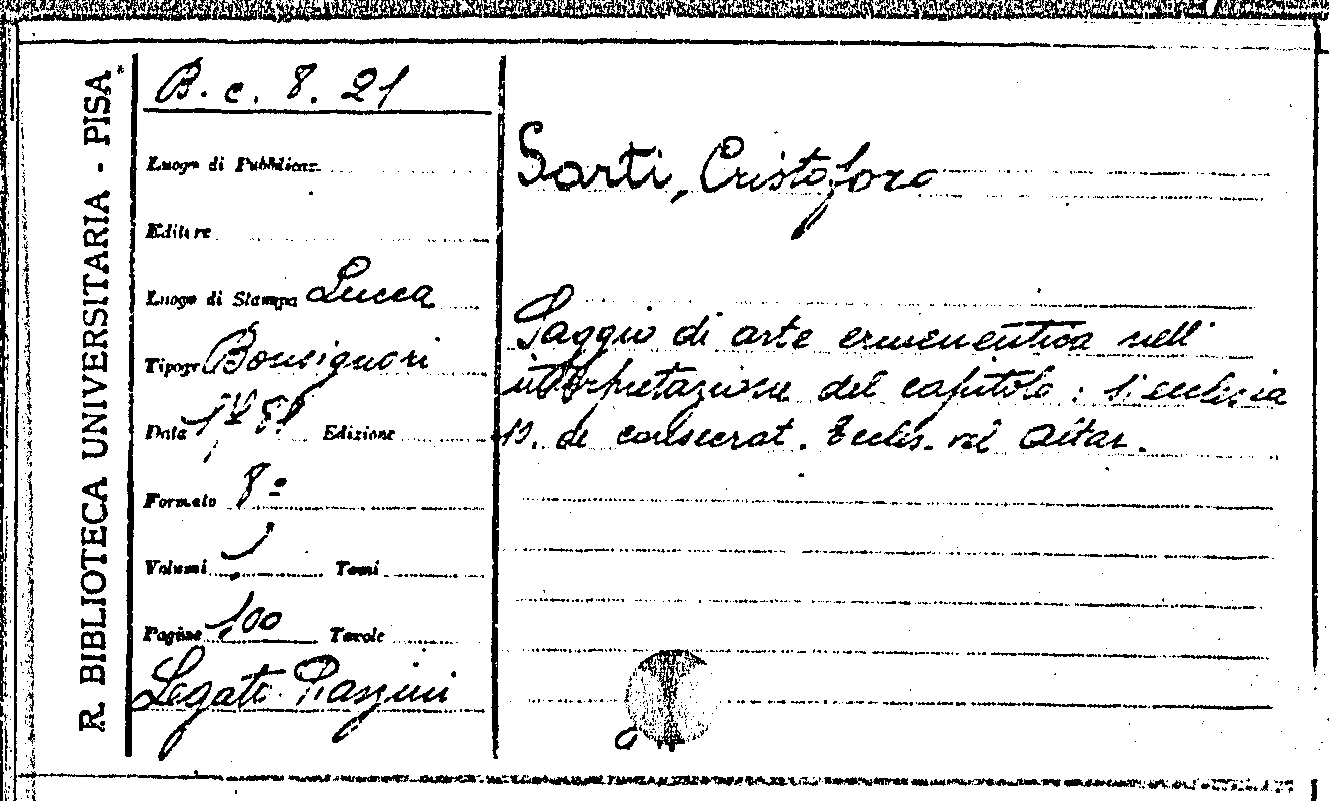 R. BIBLIOTECA UNIVERSITARIA - PISA
B. c. 8. 21
Luogo di Pubblicaz.
Editore
Luogo di Stampa Lucca
Tipogr. Bonsignori
Data 1781 Edizione
Formato 8º
Volumi 1 Tomi
Pagine 100 Tavole
Legato
Sarti, Cristoforo
Saggio di arte ermeneutica nell'
interpretazione del capitolo : Si ecclesia
19. de consecrat. Eccles. vel Altar.